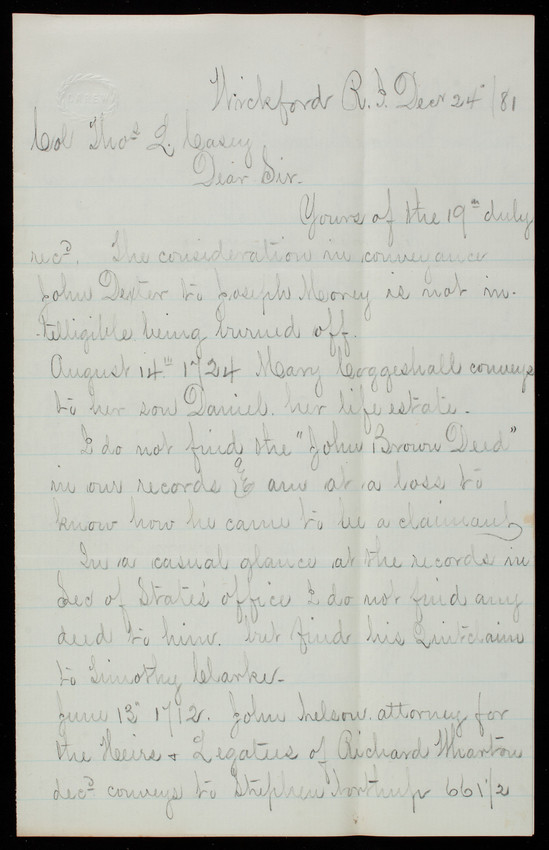 Wickford R.I. Decr 24th/81
Col Thos L. Casey
Dear Sir.
Yours of the 19th duly
recd. The consideration in conveyance
John Dexter to Joseph Morey is not in-
-telligible being burned off.
August 14th 1724 Mary Coggeshall conveys
to her son Daniel. her life estate.
I do not find the "John Brown Deed"
in our records & am at a loss to
know how he came to be a claimant
In a casual glance at the records in
Sec of State's office I do not find any
deed to him. but find his Quitclaim
to Timothy Clarke.
June 13th 1712. John Nelson. attorney for
the Heirs & Legatees of Richard Wharton
decd conveys to Stephen Northup 661 1/2